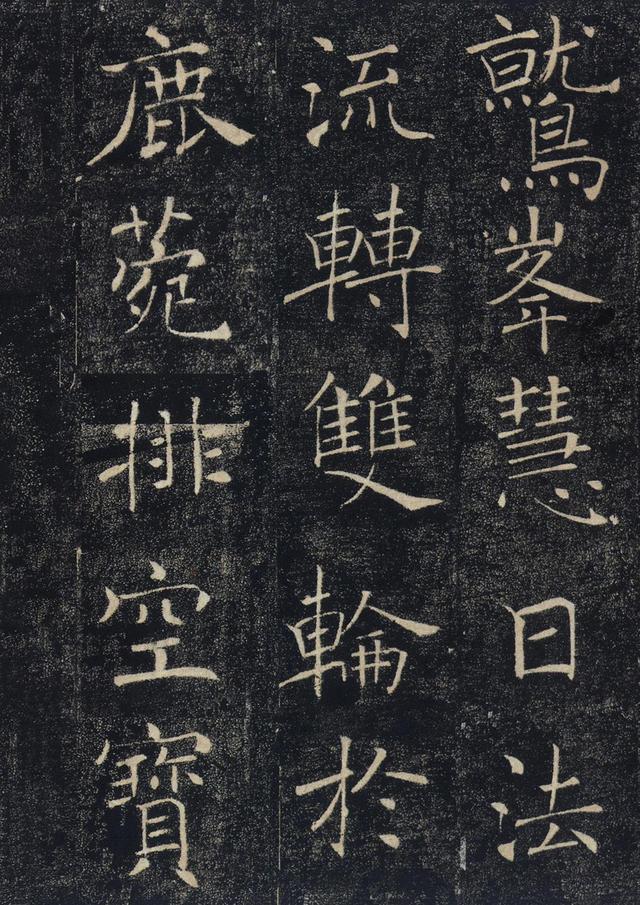 鷲峯慧日法
流轉雙輪於
鹿菀排空寶